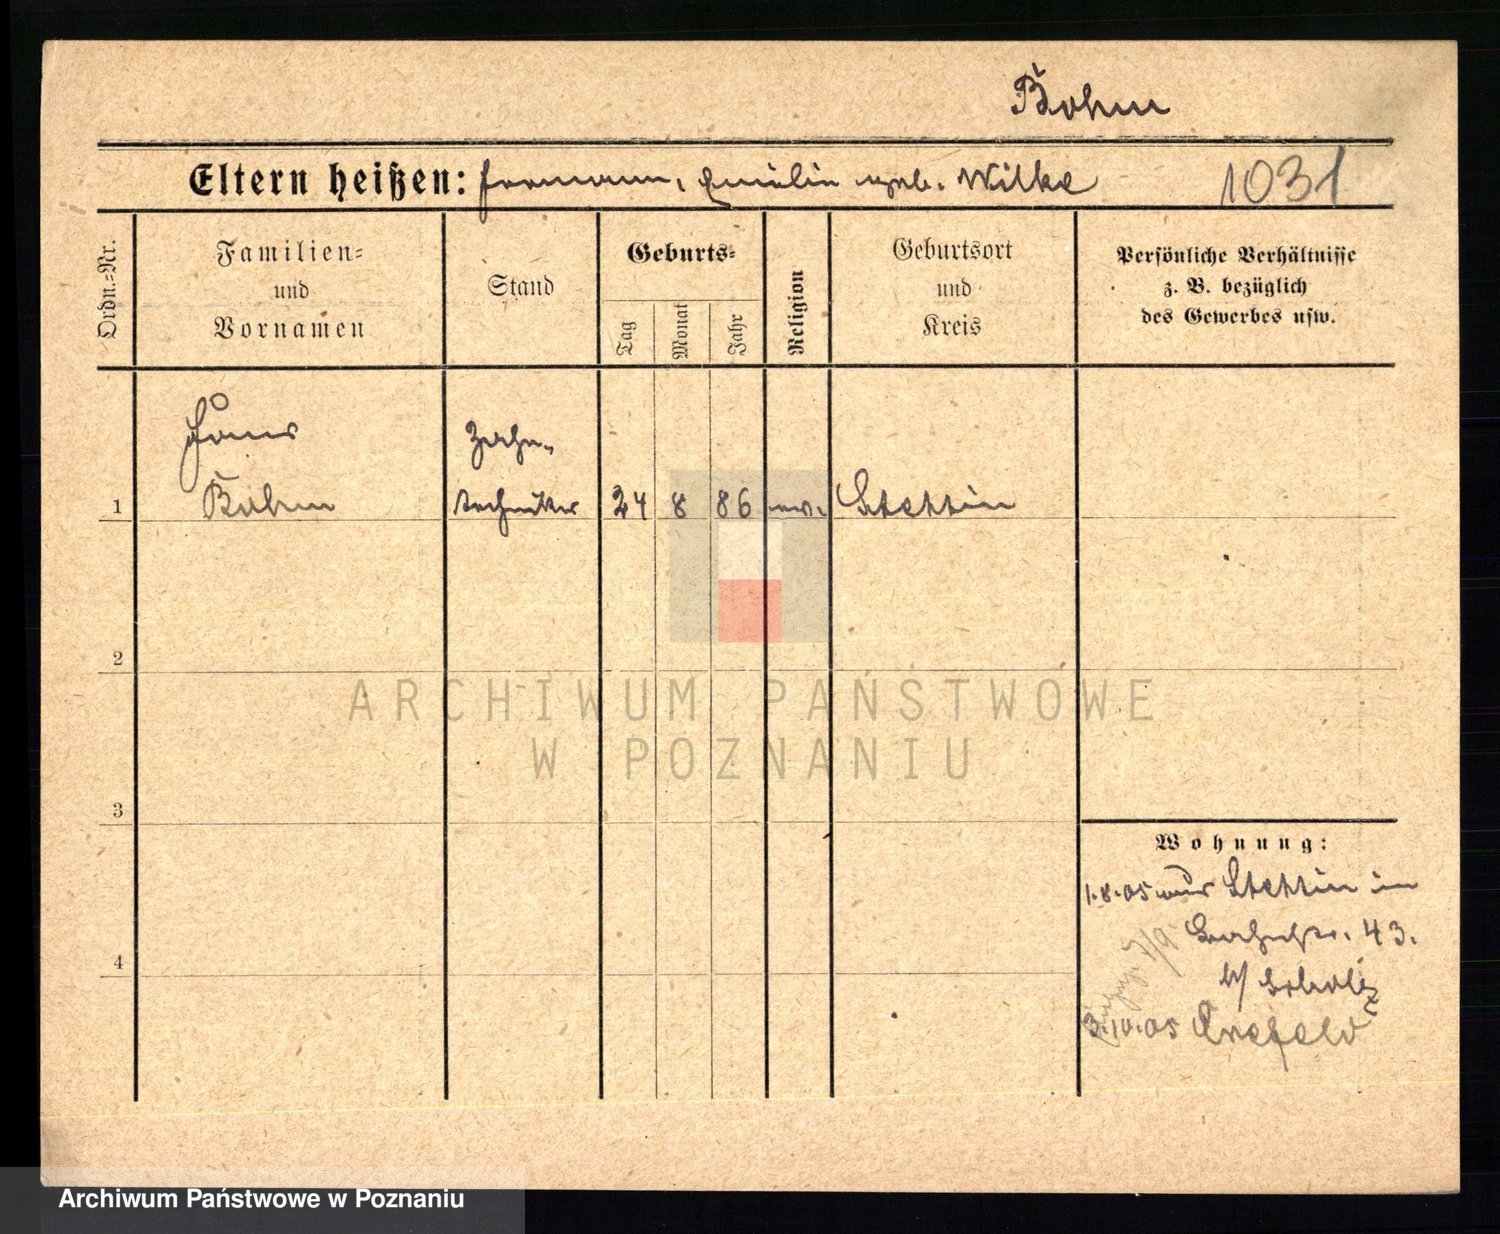 Bohm
Eltern heißen: Hermann, Emilie geb. Wilke 1031
Ordn.=Nr.
Familien=
und
Vornamen
Stand
Geburts=
Tag
Monat
Jahr
Religion
Geburtsort
und
Kreis
Persönliche Verhältnisse
z. B. bezüglich
des Gewerbes usw.
Hans Zahn-
1 Bohm techniker 24 8 86 ev. Stettin
2
3
4
Wohnung:
1.8.05 aus Stettin in
43.
b/ Scholz
3.10.05 Crefeld
ARCHIWUM PAŃSTWOWE
W POZNANIU
Archiwum Państwowe w Poznaniu